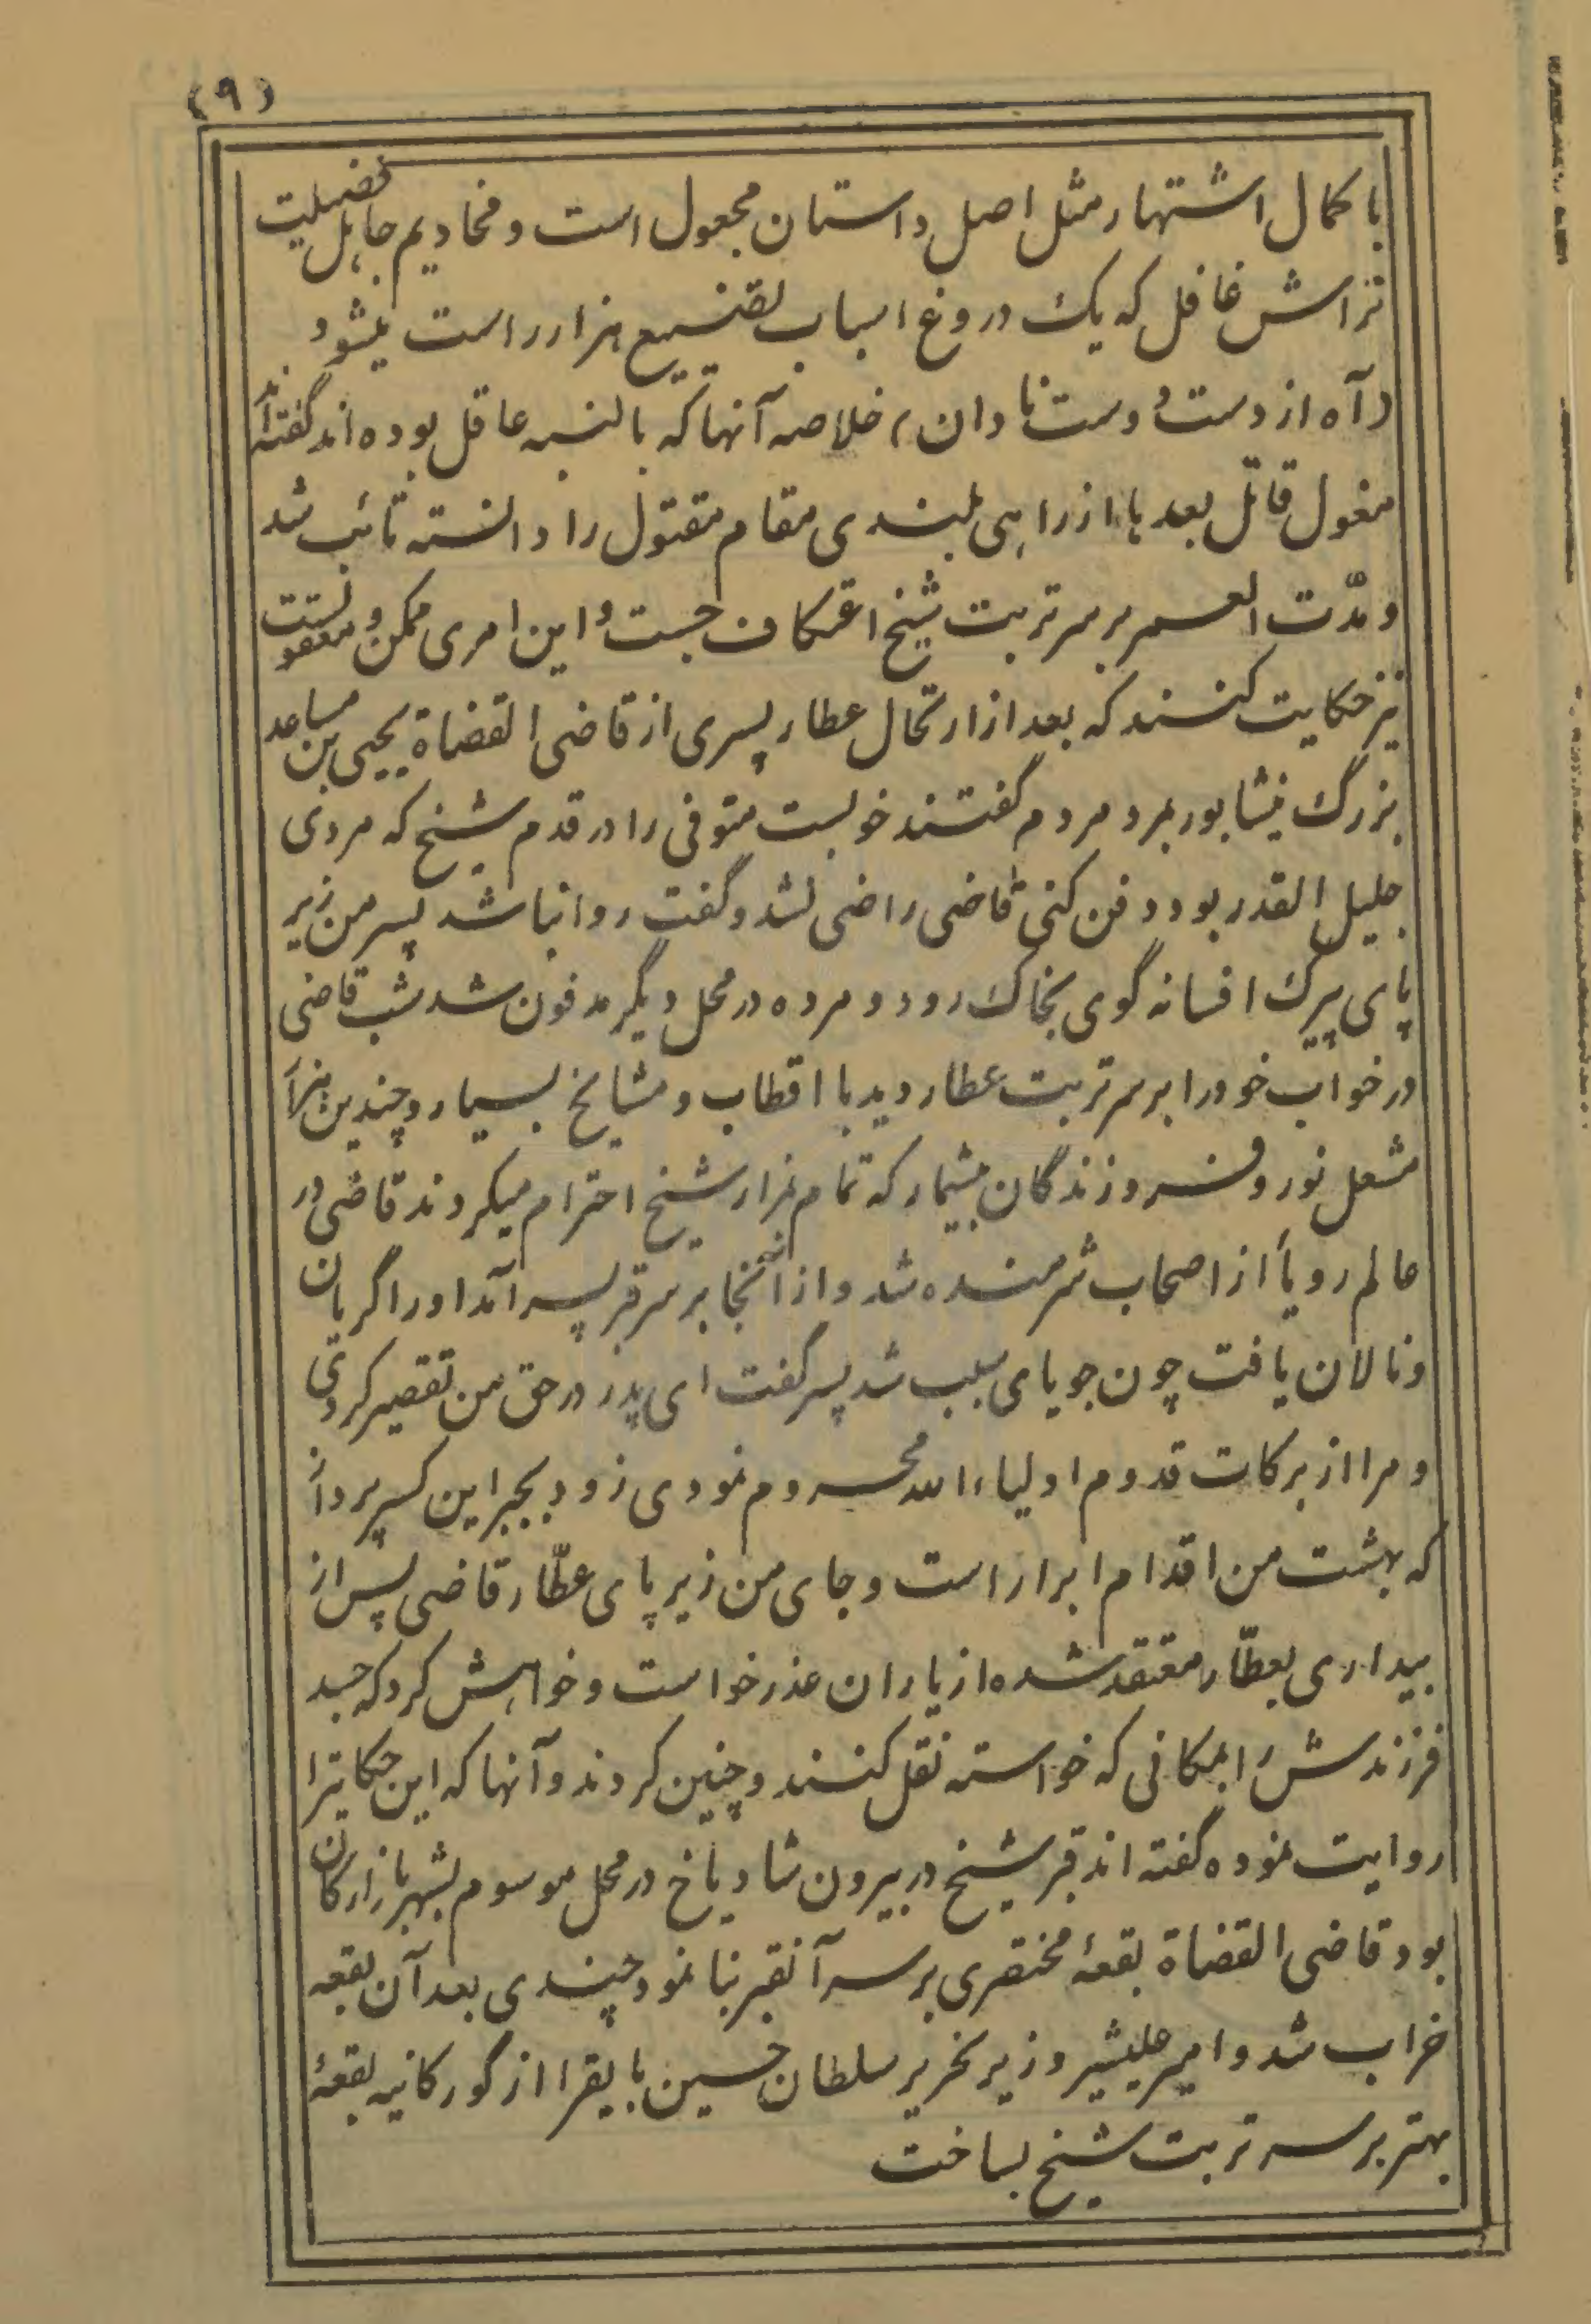 (۹)
با کمال اشتهار مثل اصل داستان مجعول است و مخادیم جاهل فضیلت
تراش غافل که یک دروغ اسباب تضییع هزار راست میشود
(آه از دست دوست نادان) خلاصه آنها که بالنسبه عاقل بوده‌اند گفته‌اند
مغول قاتل بعدها از راهی بلندی مقام مقتول را دانسته تائب شد
و مدّت العمر بر سر تربت شیخ اعتکاف جست و این امری ممکن و معقولست
نیز حکایت کنند که بعد از ارتحال عطار پسری از قاضی القضاة یحیی بن صاعد
بزرگ نیشابور بمرد مردم گفتند خوبست متوفی را در قدم شیخ که مردی
جلیل القدر بود دفن کنی قاضی راضی نشد و گفت روا نباشد پسر من زیر
پای پیرک افسانه گوی بخاک رود و مرده در محل دیگر مدفون شد شب قاضی
در خواب خود را بر سر تربت عطار دید با اقطاب و مشایخ بسیار و چندین هزار
مشعل نور و فروزندگان بیشمار که تمام بمزار شیخ احترام میکردند قاضی در
عالم رویأ از اصحاب شرمنده شد و از آنجا بر سر قبر پسر آمد او را گریان
و نالان یافت چون جویای سبب شد پسر گفت ای پدر در حق من تقصیر کردی
و مرا از برکات قدوم اولیاء الله محروم نمودی زود بجبر این کسر پرداز
که بهشت من اقدام ابرار است و جای من زیر پای عطّار قاضی پس از
بیداری بعطّار معتقد شده از یاران عذر خواست و خواهش کرد که جسد
فرزندش را بمکانی که خواسته نقل کنند و چنین کردند و آنها که این حکایترا
روایت نموده گفته‌اند قبر شیخ در بیرون شادیاخ در محل موسوم بشهر بازارکان
بود قاضی القضاة بقعهٔ مختصری بر سر آنقبر بنا نمود چندی بعد آن بقعه
خراب شد و امیر علیشیر وزیر نحریر سلطان حسین بایقرا از گورکانیه بقعهٔ
بهتر بر سر تربت شیخ بساخت